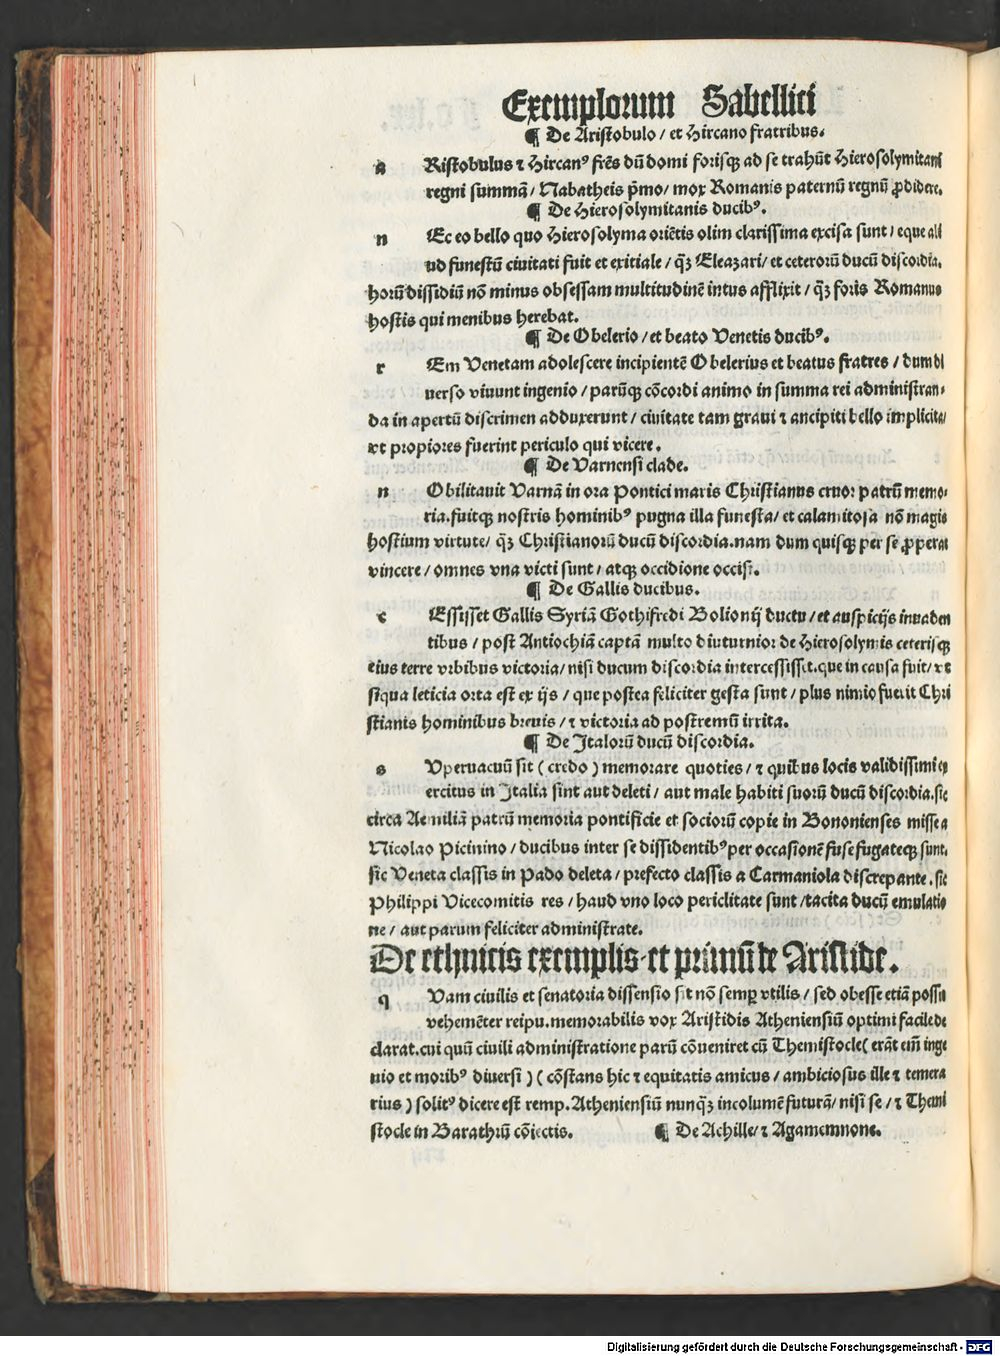 Exemplorum Sabellici
¶ De Aristobulo / et Hircano fratribus.
a Ristobulus ⁊ Hircanꝰ frēs dū domi forisqꝫ ad se trahūt Hierosolymitani
regni summā / Nabatheis p̄mo / mox Romanis paternū regnū ꝓdidere.
¶ De Hierosolymitanis ducibꝰ.
n Ec eo bello quo Hierosolyma oriētis olim clarissima excisa sunt / eque ali
ud funestū ciuitati fuit et exitiale / q̄ꝫ Eleazari / et ceterorū ducū discordia.
horū dissidiū nō minus obsessam multitudinē intus afflixit / q̄ꝫ foris Romanus
hostis qui menibus herebat.
¶ De Obelerio / et beato Venetis ducibꝰ.
r Em Venetam adolescere incipientē Obelerius et beatus fratres / dum di
uerso viuunt ingenio / parūqꝫ cōcordi animo in summa rei administran-
da in apertū discrimen adduxerunt / ciuitate tam graui ⁊ ancipiti bello implicita /
vt propiores fuerint periculo qui vicere.
¶ De Varnensi clade.
n Obilitauit Varnā in ora Pontici maris Christianus cruor patrū memo-
ria. fuitqꝫ nostris hominibꝰ pugna illa funesta / et calamitosa nō magis
hostium virtute / q̄ꝫ Christianorū ducū discordia. nam dum quisqꝫ per se ꝓperat
vincere / omnes vna victi sunt / atqꝫ occidione occisi.
¶ De Gallis ducibus.
c Essisset Gallis Syriā Gothifredi Bolionij ductu / et auspicijs inuaden
tibus / post Antiochiā captā multo diuturnior de Hierosolymis ceterisqꝫ
eius terre vrbibus victoria / nisi ducum discordia intercessisset. que in causa fuit / vt
siqua leticia orta est ex ijs / que postea feliciter gesta sunt / plus nimio fuerit Chri
stianis hominibus breuis / ⁊ victoria ad postremū irrita.
¶ De Italorū ducū discordia.
s Vperuacuū sit ( credo ) memorare quoties / ⁊ quibus locis validissimi ex
ercitus in Italia sint aut deleti / aut male habiti suorū ducū discordia. sic
circa Aemiliā patrū memoria pontificie et sociorū copie in Bononienses misse a
Nicolao Picinino / ducibus inter se dissidentibꝰ per occasionē fuse fugateqꝫ sunt.
sic Veneta classis in Pado deleta / prefecto classis a Carmaniola discrepante. sic
Philippi Vicecomitis res / haud vno loco periclitate sunt / tacita ducū emulatio
ne / aut parum feliciter administrate.
De ethnicis exemplis et primū de Aristide.
q Vam ciuilis et senatoria dissensio sit nō semꝑ vtilis / sed obesse etiā possit
vehemēter reipu. memorabilis vox Aristidis Atheniensiū optimi facile de
clarat. cui quū ciuili administratione parū cōueniret cū Themistocle ( erāt em̄ inge
nio et moribꝰ diuersi ) ( cōstans hic ⁊ equitatis amicus / ambiciosus ille ⁊ temera
rius ) solitꝰ dicere est remp. Atheniensiū nunq̄ꝫ incolumē futurā / nisi se / ⁊ Themi
stocle in Barathrū cōiectis. ¶ De Achille / ⁊ Agamemnone.
Digitalisierung gefördert durch die Deutsche Forschungsgemeinschaft - DFG